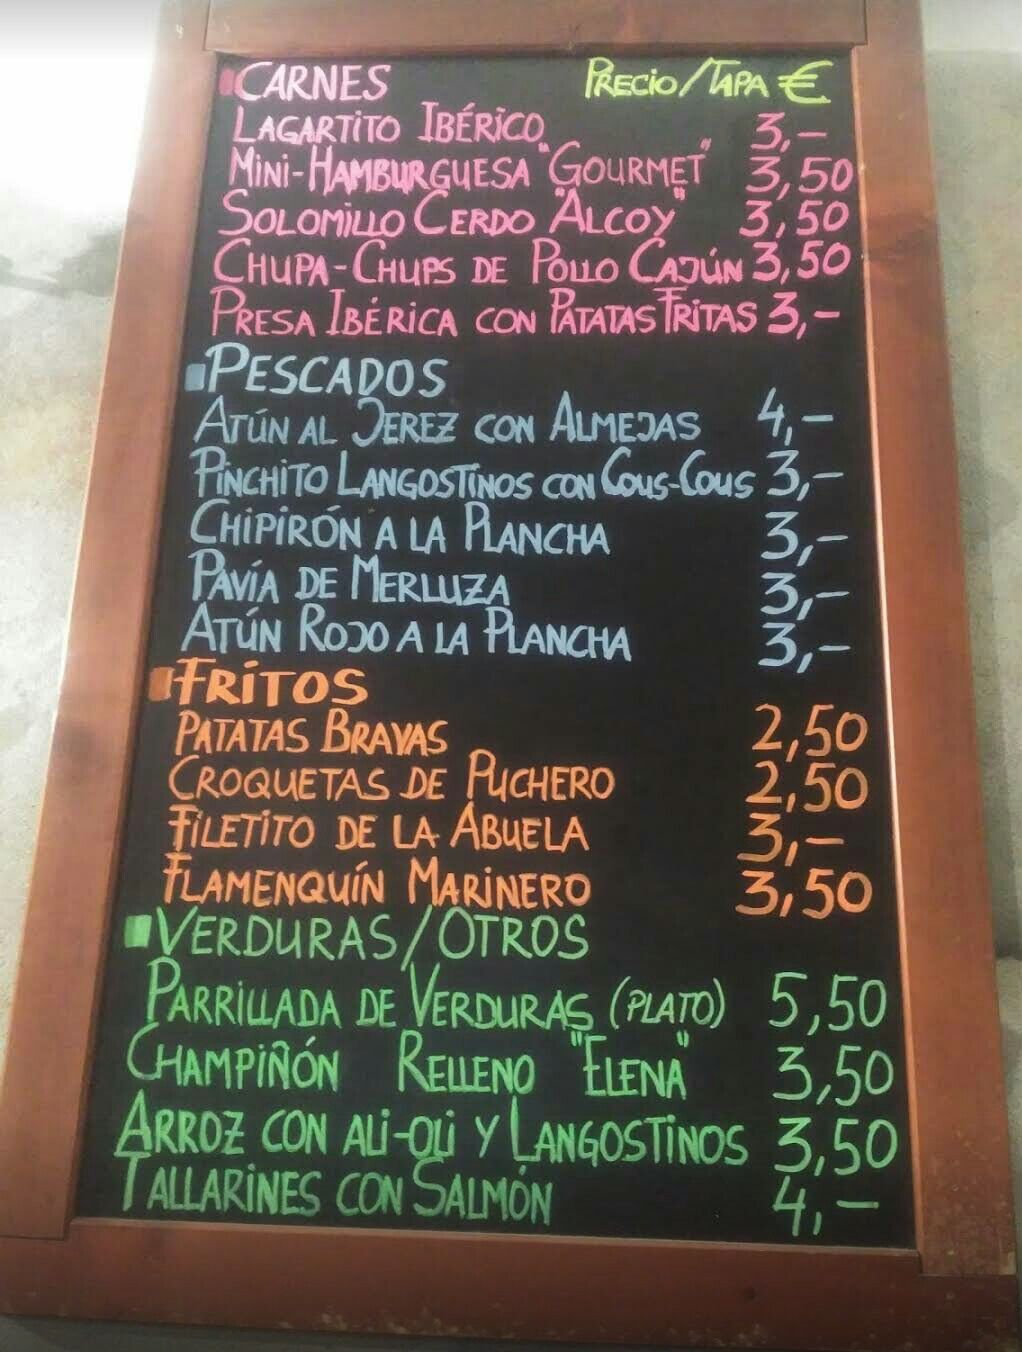 CARNES PRECIO/TAPA €
LAGARTITO IBÉRICO 3,-
MINI-HAMBURGUESA "GOURMET" 3,50
SOLOMILLO CERDO "ALCOY" 3,50
CHUPA-CHUPS DE POLLO CAJÚN 3,50
PRESA IBÉRICA CON PATATAS FRITAS 3,-
PESCADOS
ATÚN AL JEREZ CON ALMEJAS 4,-
PINCHITO LANGOSTINOS CON COUS-COUS 3,-
CHIPIRÓN A LA PLANCHA 3,-
PAVÍA DE MERLUZA 3,-
ATÚN ROJO A LA PLANCHA 3,-
FRITOS
PATATAS BRAVAS 2,50
CROQUETAS DE PUCHERO 2,50
FILETITO DE LA ABUELA 3,-
FLAMENQUÍN MARINERO 3,50
VERDURAS/OTROS
PARRILLADA DE VERDURAS (PLATO) 5,50
CHAMPIÑÓN RELLENO "ELENA" 3,50
ARROZ CON ALI-OLI Y LANGOSTINOS 3,50
TALLARINES CON SALMÓN 4,-